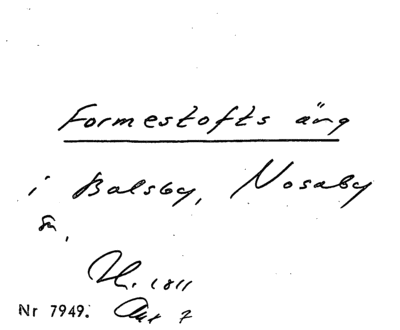 Formestofts äng
i Balsby, Nosaby
sn.
H. 1811
Nr 7949. Akt 7